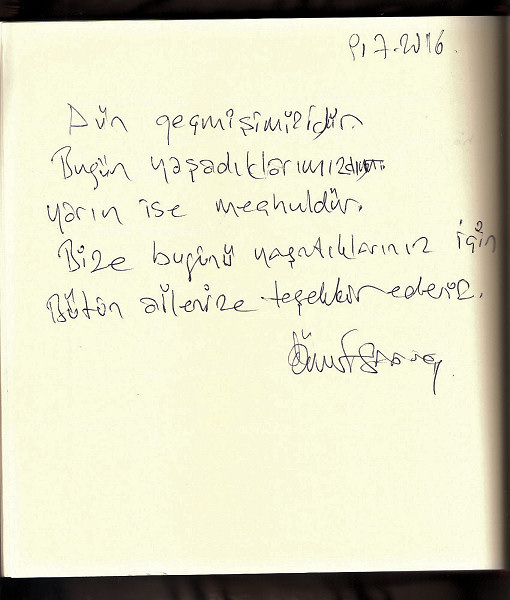 9.7.2016.
Dün geçmişimizidir.
Bugün yaşadıklarımızdır.
yarın ise meçhuldür.
Bize bugünü yaşattıklarınız için
Bütün ailenize teşekkür ederiz.